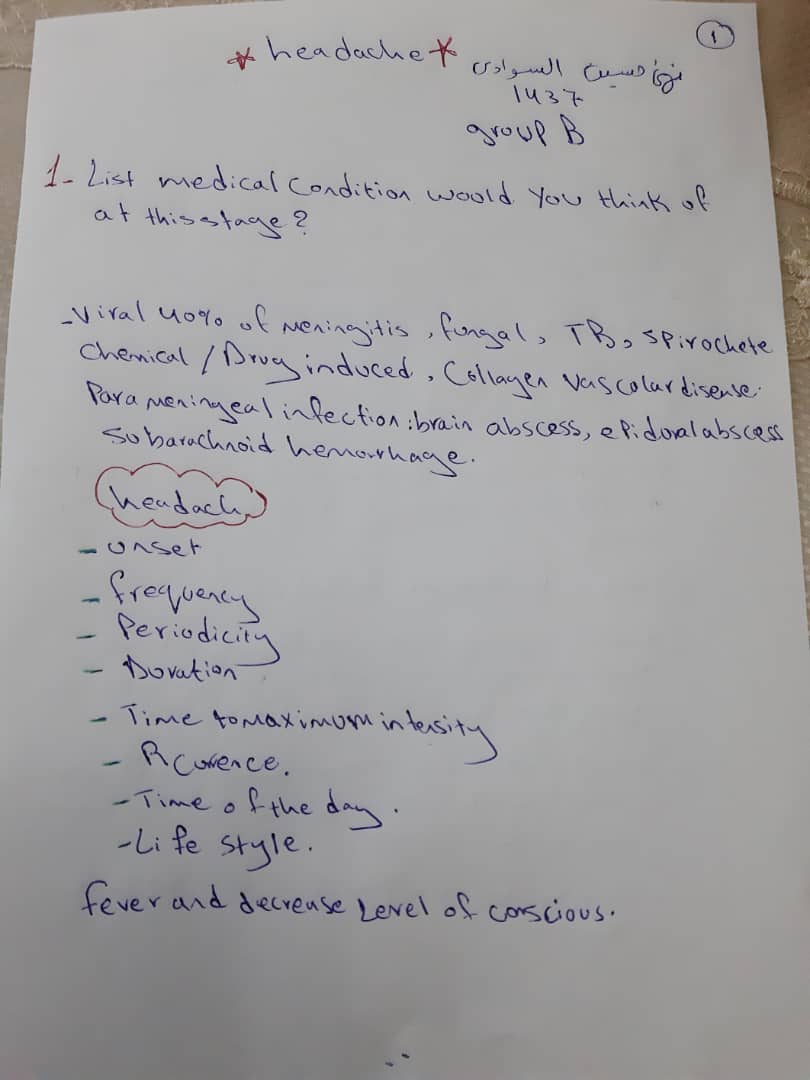 1
*headache*
حسين السوادي
1437
group B
1- List medical Condition woold You think of
at this stage?
-Viral 40% of Meningitis, fungal, TB, spirochete
Chemical / Drug induced, Collagen vascolar disease.
Para meningeal infection: brain abscess, epidoral abscess
subarachnoid hemorrhage.
headach
- onset
- frequency
- Periodicity
- Doration
- Time to maximum intensity
- Rcurence.
- Time of the day.
- Life style.
fever and decrease Level of conscious.